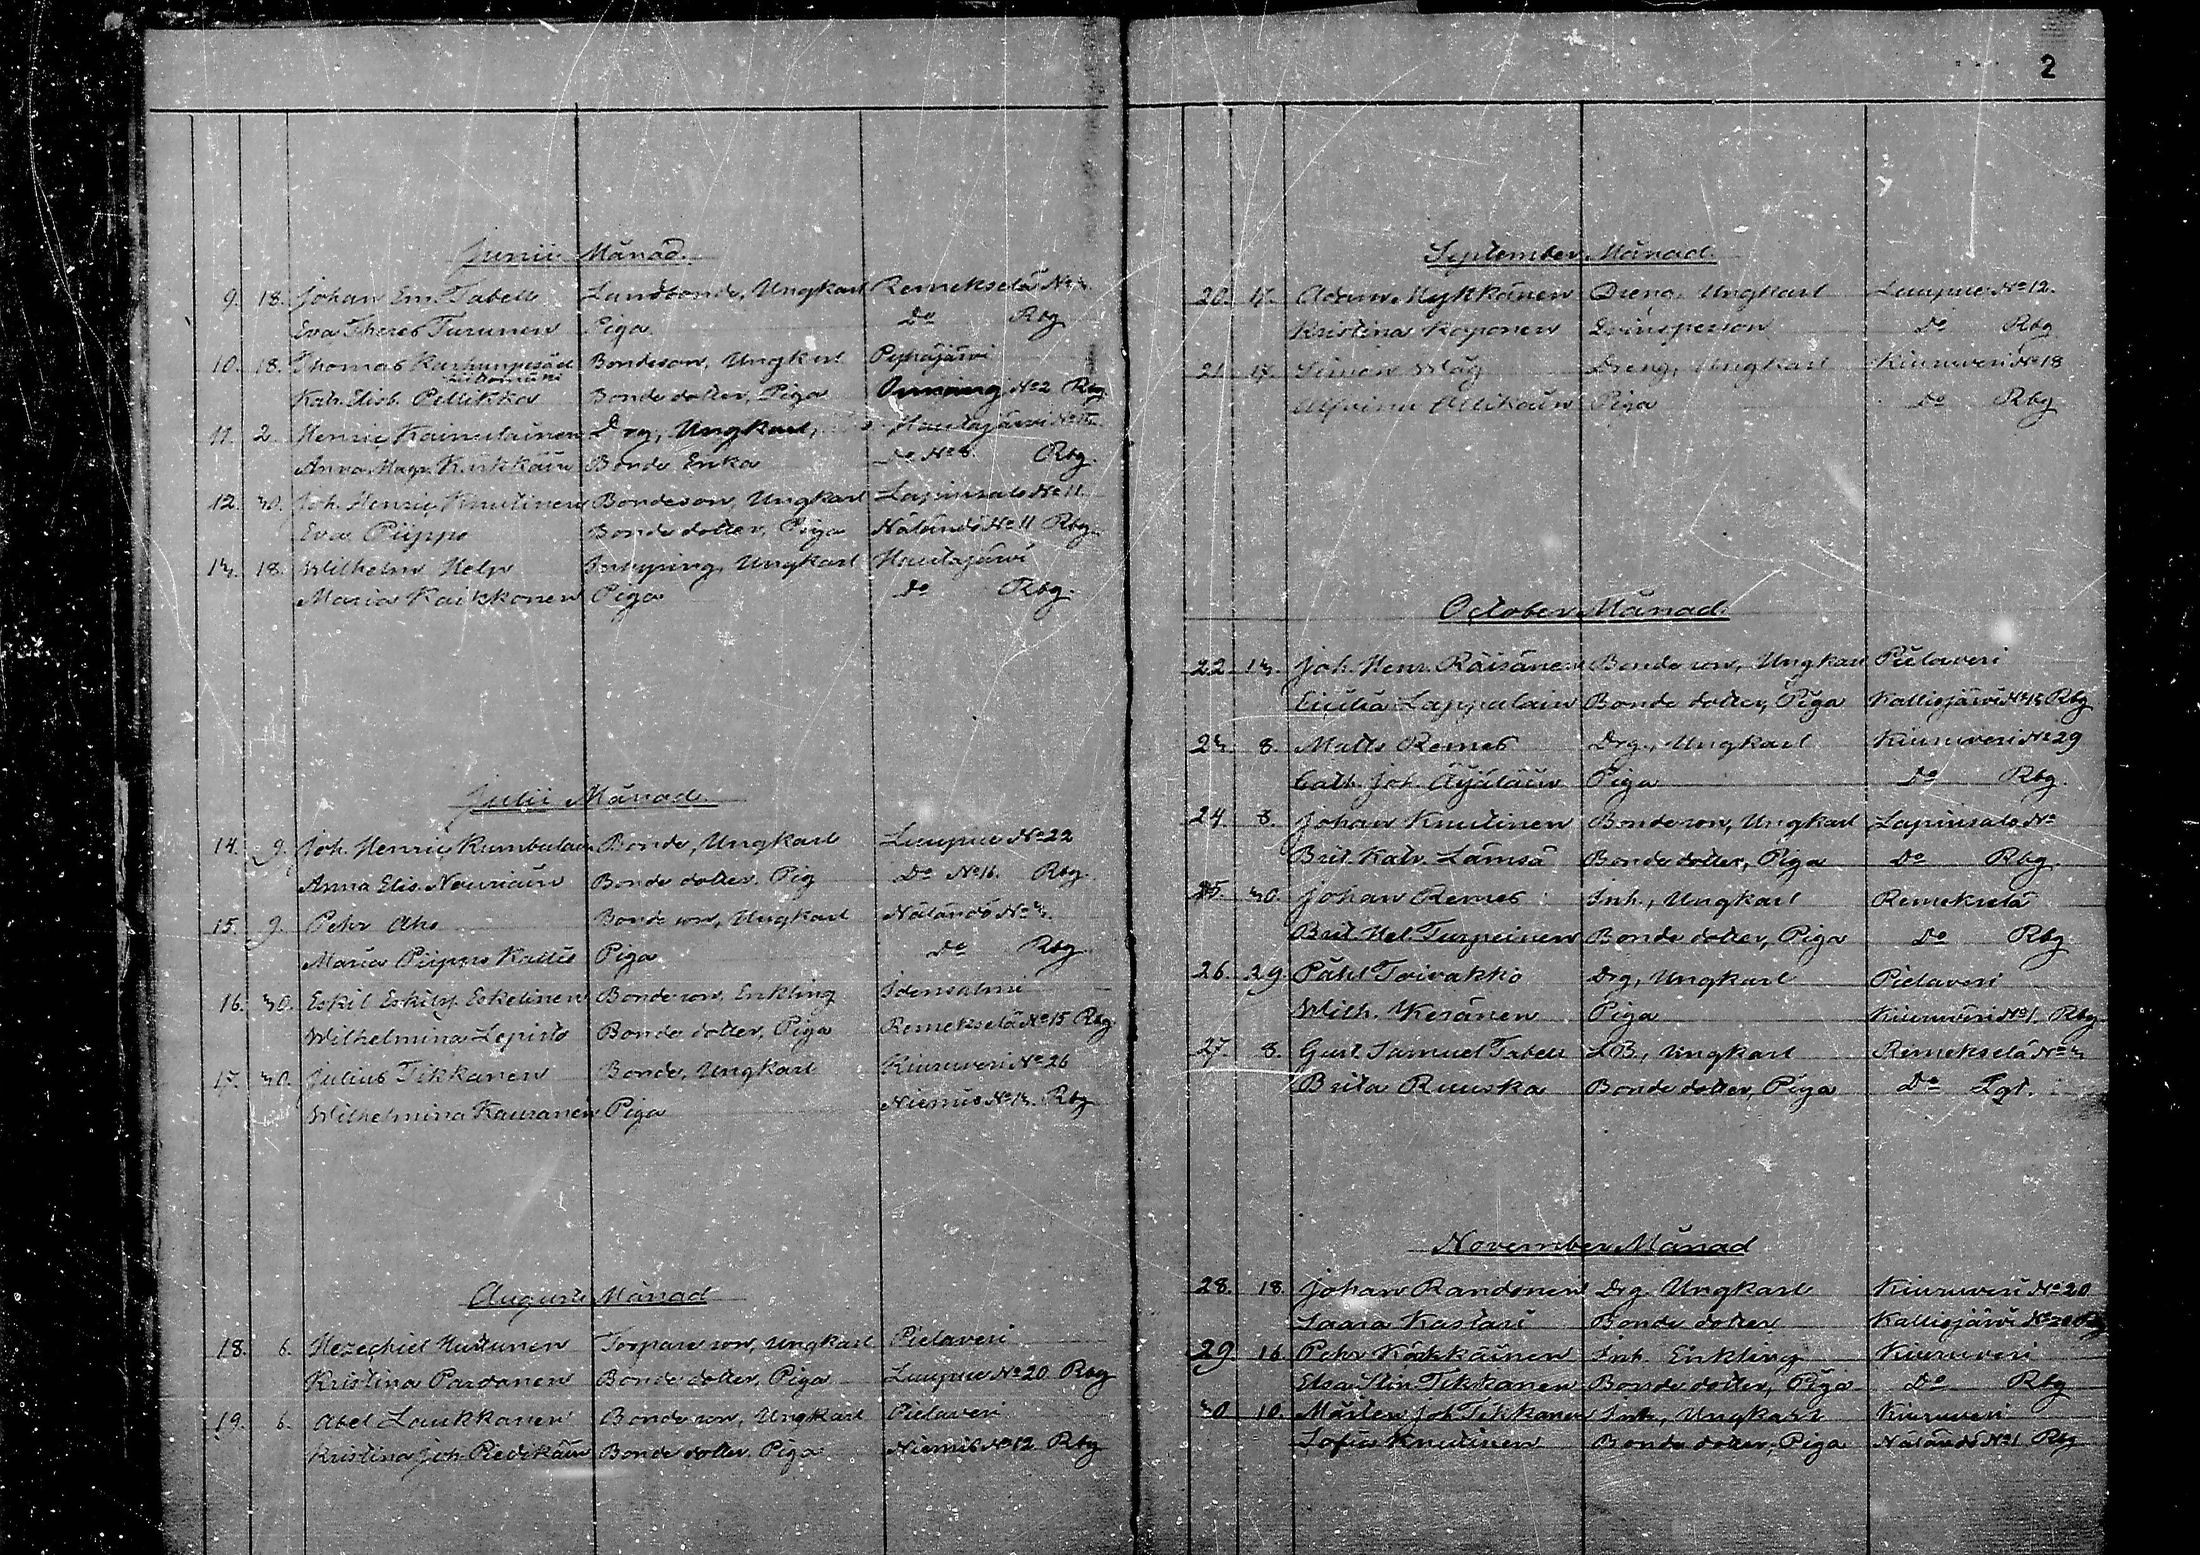 2
Junii Månad.
9. 18. Johan Em. Tabell Landbonde, Ungkarl Remekselä No 3.
Eva Theres Turunen Piga Do Rbg
10. 18. Thomas Karhunpesäe Bondeson, Ungkarl Pyhäjärvi
Kath. Elisb. Pellikka Bonde dotter, Piga No 2 Rbg
11. 2. Henric Kainulainen Drg, Ungkarl, Hautajärvi
Anna Magr. Bonde Enka Do No 8. Rbg.
12. 30. Joh. Henric Knutinen Bondeson, Ungkarl Lapinsalo No 11.
Eva Piippo Bonde dotter, Piga Näländö No 11 Rbg.
13. 18. Wilhelm Help Inhysing, Ungkarl Hautajärvi
Maria Kaikkonen Piga Do Rbg.
Julii Månad.
14. 9. Joh. Henric Rumbulain Bonde, Ungkarl Luupue No 22
Anna Elis. Nouriain Bonde dotter. Pig Do No 16. Rbg.
15. 9. Pehr Aho Bonde son, Ungkarl Näländö No 3.
Maria Piippo Kallis Piga Do Rbg
16. 30. Eskil Eskilsf. Eskelinen Bonde son, Enkling Idensalmi
Wilhelmina Lepistö Bonde dotter, Piga Remekselä No 15 Rbg
17. 30. Julius Tikkanen Bonde, Ungkarl Kiuruveri No 26
Wilhelmina Kauranen Piga Niemis No 13. Rbg
Augusti Månad
18. 6. Hezechiel Huttunen Torpare son, Ungkarl Pielaveri
Kristina Pardanen Bonde dotter, Piga Luupue No 20 Rbg
19. 6. Abel Laukkanen Bonde son, Ungkarl Pielaveri
Kristina Joh. Piedikäin Bonde dotter. Piga Niemis No 12 Rbg
September Månad.
20. 17. Adam Mykkänen Dreng, Ungkarl Luupue No 12.
Kristina Koponen Qvinsperson Do Rbg
21. 17. Simon Dreng, Ungkarl Kiuruveri No 18
Piga Do Rbg
October Månad.
22. 13. Joh. Henr. Räisänen Bonde son, Ungkarl Pielaveri
Cicilia Lappalain Bonde dotter, Piga Kalliojärvi No 15 Rbg
23. 8. Matts Remes Drg., Ungkarl Kiuruveri No 29
Cath. Joh. Äijäläin Piga Do Rbg.
24. 8. Johan Knutinen Bonde son, Ungkarl Lapinsalo No
Brit. Katr. Lämsä Bonde dotter, Piga Do Rbg.
25. 30. Johan Remes Inh., Ungkarl Remekselä
Brit. Hel. Turpeinen Bonde dotter, Piga Do Rbg
26. 29 Påhl Toivakko Drg, Ungkarl Pielaveri
Wilh. Keränen Piga Kiuruveri No 1. Rbg
27. 8. Gust. Samuel Tabell LB, Ungkarl Remekselä No 3
Brita Ruuska Bonde dotter, Piga Do Lgt.
November Månad
28. 18. Johan Randonen Drg. Ungkarl Kiuruveri No 20
Saara Kastari Bonde dotter Kalliojärvi
29 16 Pehr Kärkkäinen Inh. Enkling Kiuruveri
Elsa Stin Tikkanen Bonde dotter, Piga Do Rbg
30 10. Mårten Joh Tikkanen Inh., Ungkarl Kiuruveri
Sofia Knutinen Bonde dotter, Piga Näländö No 1 Rbg